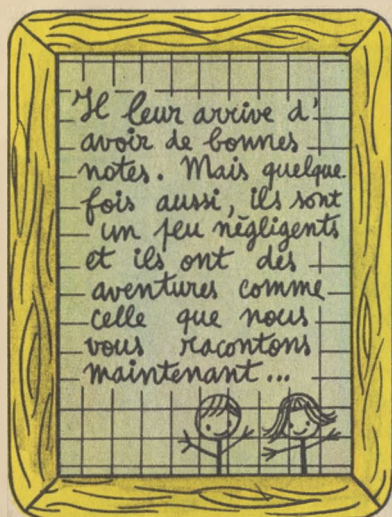 Il leur arrive d'
avoir de bonnes
notes. Mais quelque
fois aussi, ils sont
un peu négligents
et ils ont des
aventures comme
celle que nous
vous racontons
maintenant...